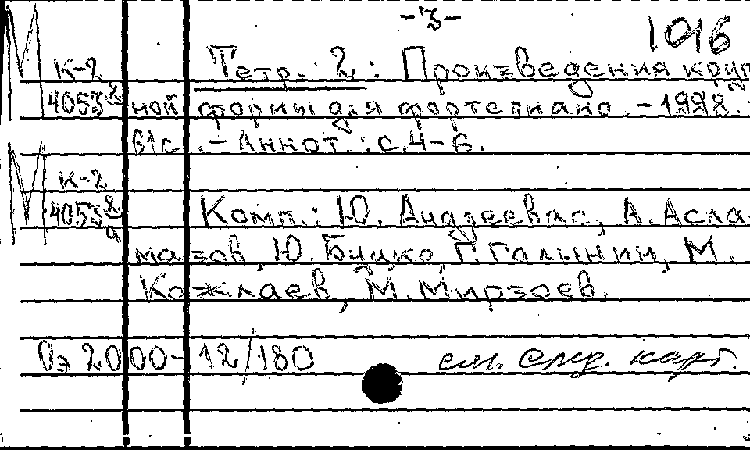 -3-
1016
М К-2 Тетр. 2: Произведения круп
4053 2 ной формы для фортепиано. - 1998.
61с. - Аннот.: с.4-6.
М К-2
4053 2 Комп.: Ю. Андреевас, А. Асла
мазов, Ю. Буцко, Г. Галынин, М.
Кажлаев, М. Мирзоев.
Пэ 2000-12/180 см. след. карт.